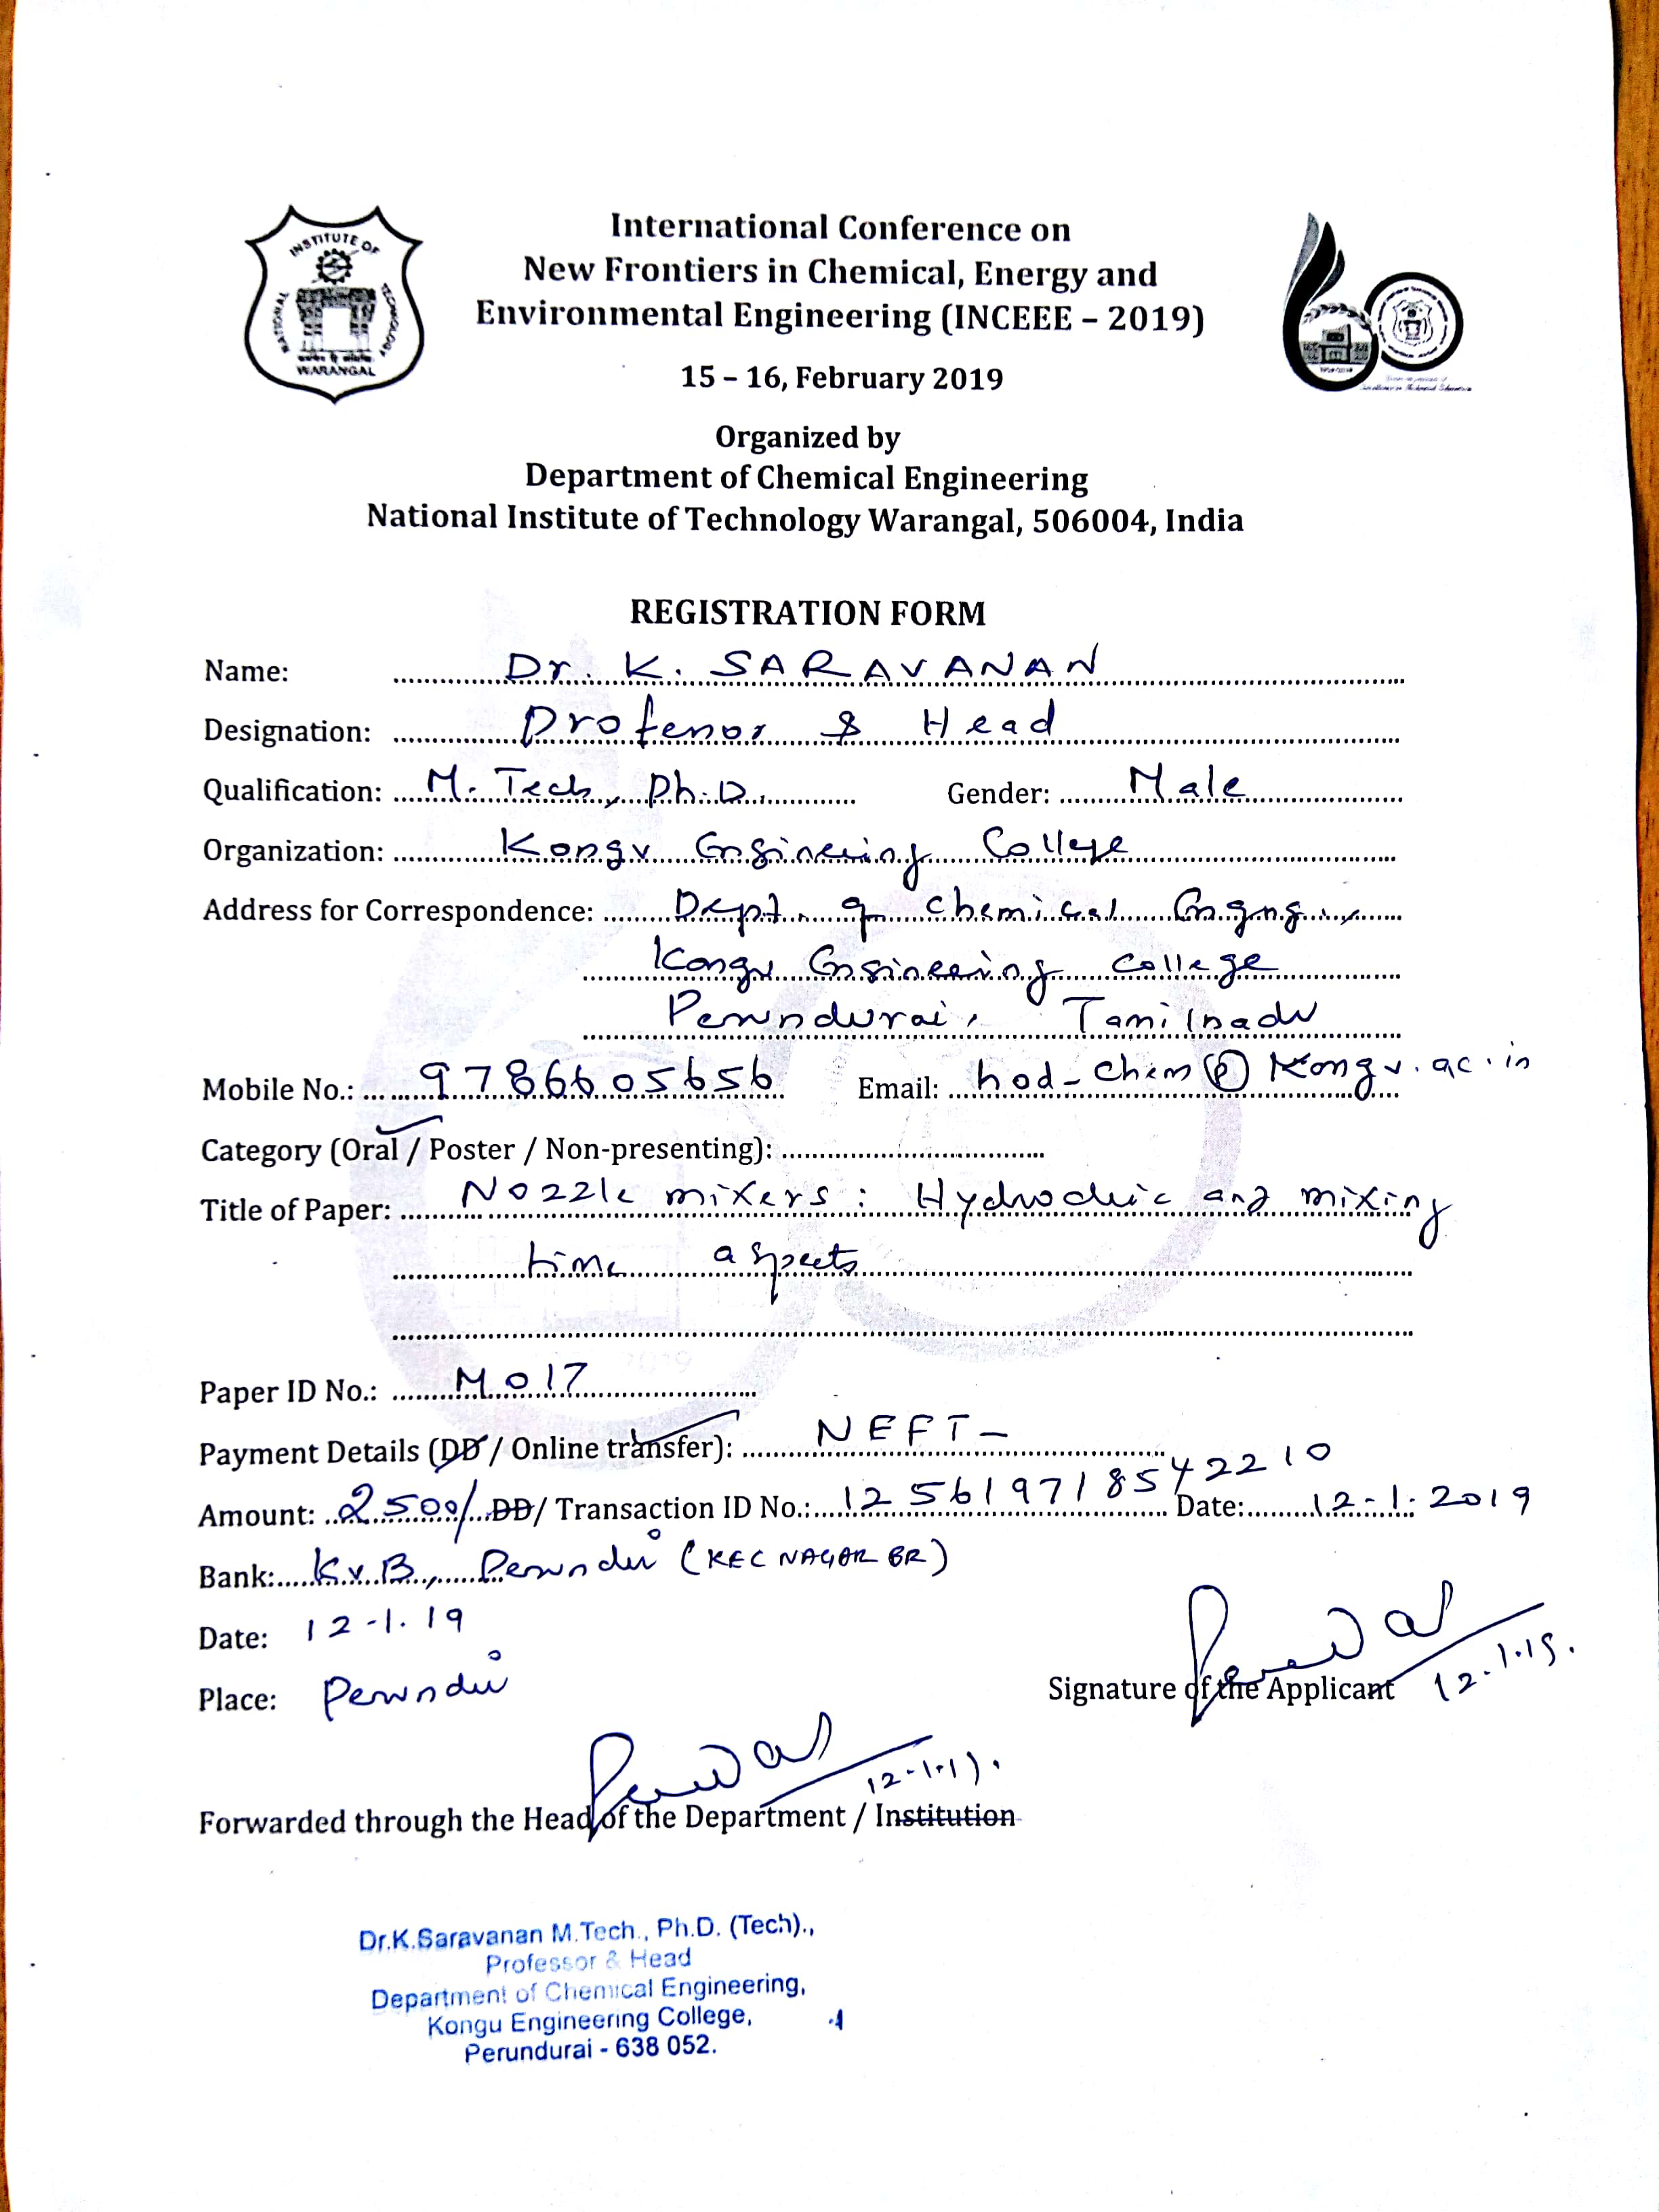 INSTITUTE OF
NATIONAL
TECHNOLOGY
WARANGAL
International Conference on
New Frontiers in Chemical, Energy and
Environmental Engineering (INCEEE – 2019)
15 – 16, February 2019
Organized by
Department of Chemical Engineering
National Institute of Technology Warangal, 506004, India
REGISTRATION FORM
Name: Dr. K. SARAVANAN
Designation: Professor & Head
Qualification: M. Tech, Ph.D. Gender: Male
Organization: Kongu Engineering College
Address for Correspondence: Dept. of chemical Engng.,
Kongu Engineering college
Perundurai, Tamilnadu
Mobile No.: 9786605656 Email: hod_chem@kongu.ac.in
Category (Oral / Poster / Non-presenting):
Title of Paper: Nozzle mixers: and mixing
time aspects
Paper ID No.: M017
Payment Details (DD / Online transfer): NEFT-
Amount: 2500/ DD/ Transaction ID No.: 12561971854 2210 Date: 12-1-2019
Bank: KVB, (KEC NAGAR BR)
Date: 12-1.19
Place:
Signature of the Applicant 12-1.19.
12-1.19.
Forwarded through the Head of the Department / Institution
Dr.K.Saravanan M.Tech., Ph.D. (Tech).,
Professor & Head
Department of Chemical Engineering,
Kongu Engineering College,
Perundurai - 638 052.